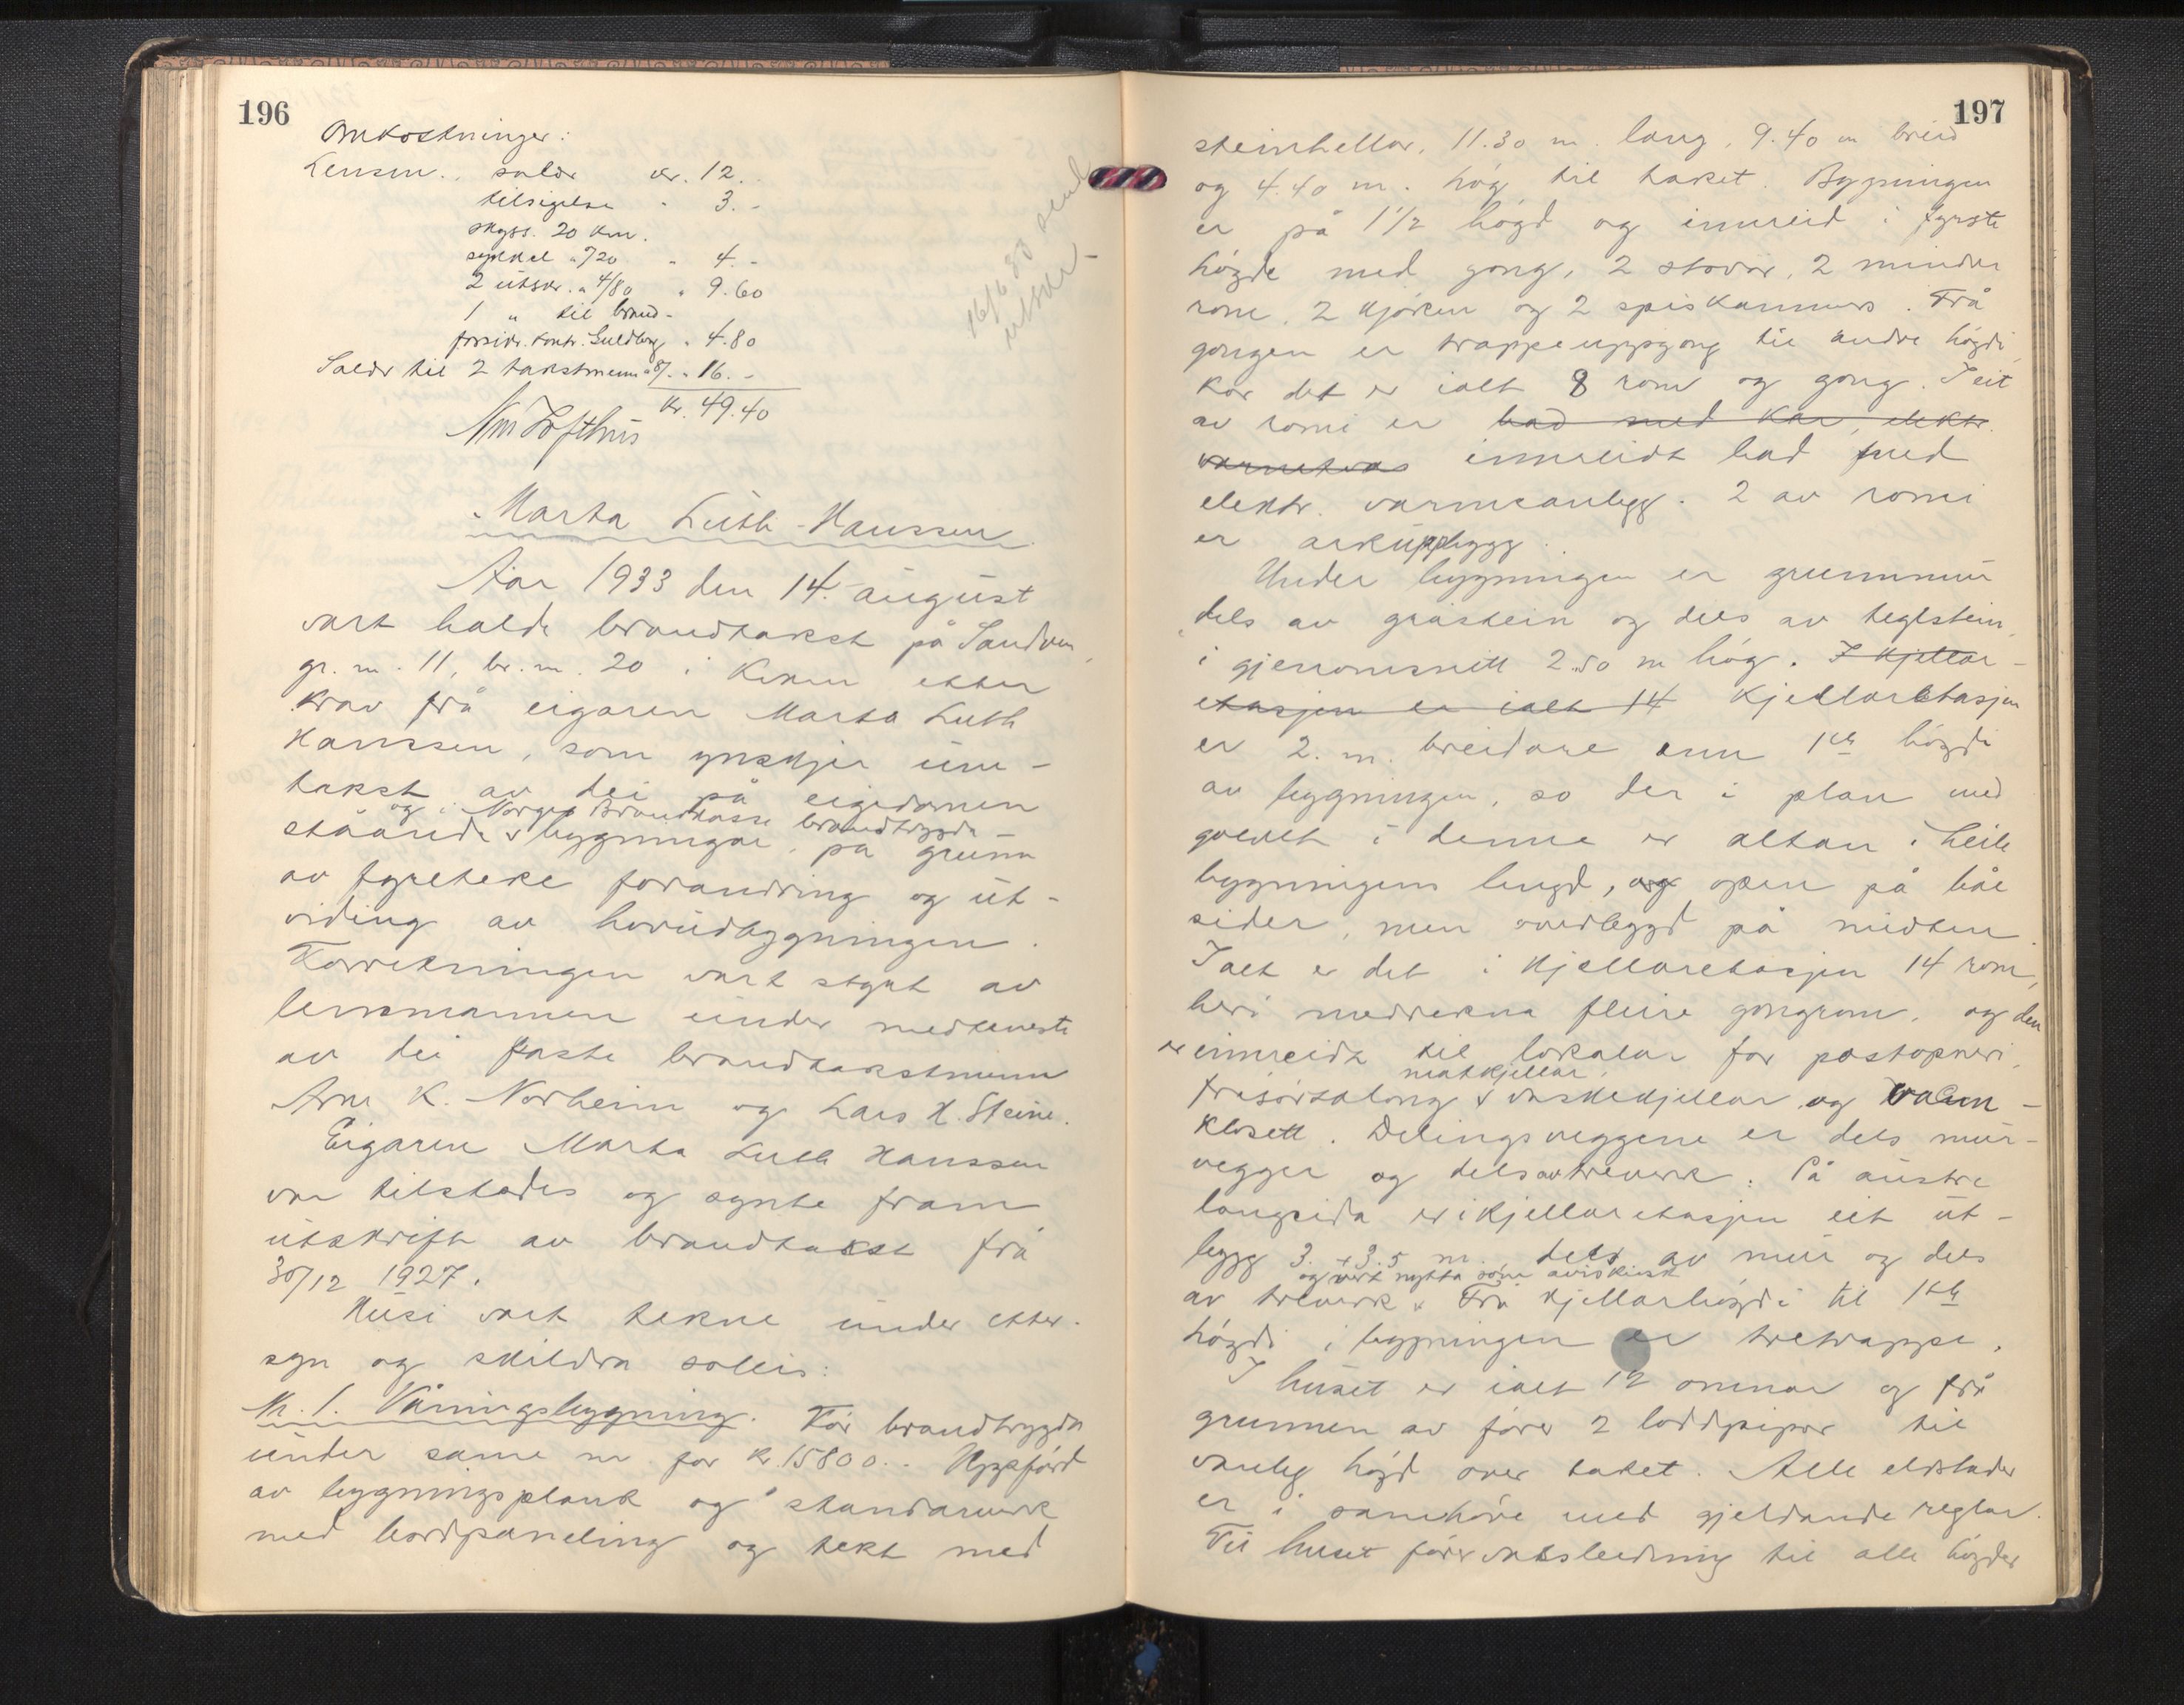 196
Omkostninger:
Lensm. salær kr. 12.-
tilsigelse " 3.-
skyss. 20 km.
sykkel a /20 " 4.-
2 utskr. a 4/80 " 9.60
1 " til brand-
forsikr. kontr. Guldberg " 4.80
Salær til 2 takstmenn a 8/- " 16.-
kr. 49.40
16/6 80 send
utskr.
Marta Luth-Hanssen.
Aar 1933 den 14. august
vart halde brandtakst på Sandven,
gr. nr. 11, br. nr. 20 i Kvam etter
krav frå eigaren Marta Luth
Hanssen, som ynskjer um-
takst av dei på eigedomen
og i Norges Brandkasse brandtrygda
ståande v bygningar, på grunn
av fyreteke forandring og ut-
viding av hovudbygningen.
Forretningen vart styrt av
lensmannen under medteneste
av dei faste brandtakstmenn
Arne K. Norheim og Lars H. Steine.
Eigaren Marta Luth Hanssen
var tilstades og synte fram
utskrift av brandtakst frå
30/12 1927.
Husi vart tekne under etter-
syn og skildra soleis:
Nr. 1. Våningsbygning. Før brandtrygda
under same nr. for kr. 15800.- Uppförd
av bygningsplank og standarverk
med bordpaneling og tekt med
197
steinhellor, 11.30 m. lang, 9.40 m breid
og 4.40 m. høg til taket. Bygningen
er på 1 1/2 høgd og innreid i fyrste
høgde med gong, 2 stovor, 2 mindre
rom, 2 kjøken og 2 spiskammers. Frå
gongen er trappeuppgong til andre høgdi,
kor det er ialt 8 rom og gong. I eit
av romi er bad med kar, elektr.
varmetvas innreidt bad med
elektr. varmeanlegg. 2 av romi
er arkuppbygg.
Under bygningen er grunnmur
dels av gråstein og dels av teglstein,
i gjenomsnitt 2.50 m høg. I kjellar-
etasjen er ialt 14 Kjellaretasjen
er 2. m. breidare enn 1ste høgdi
av bygningen, so der i plan med
golvet i denne er altan i heile
bygningens lengd, og open på båe
sider, men overbygd på midten.
Ialt er det i kjellaretasjen 14 rom,
heri medrekna fleire gongrom, og den
er innreidt til lokalar for postopneri,
matkjellar,
frisørsalong v vaskekjellar og vann-
klosett. Delingsveggene er dels mur-
vegger og dels av treverk. På austre
langsida er i kjellaretasjen eit ut-
bygg 3. x 3.5 m. dels av mur og dels
og vert nytta som aviskiosk
av treverk v Frå kjellarhøgdi til 1ste
høgdi i bygningen er tretrappe.
I huset er ialt 12 omnar og frå
grunnen av fører 2 loddpipor til
vanleg høgd over taket. Alle eldstader
er i samhøve med gjeldande reglar.
Til huset förer vatsleidning til alle høgder